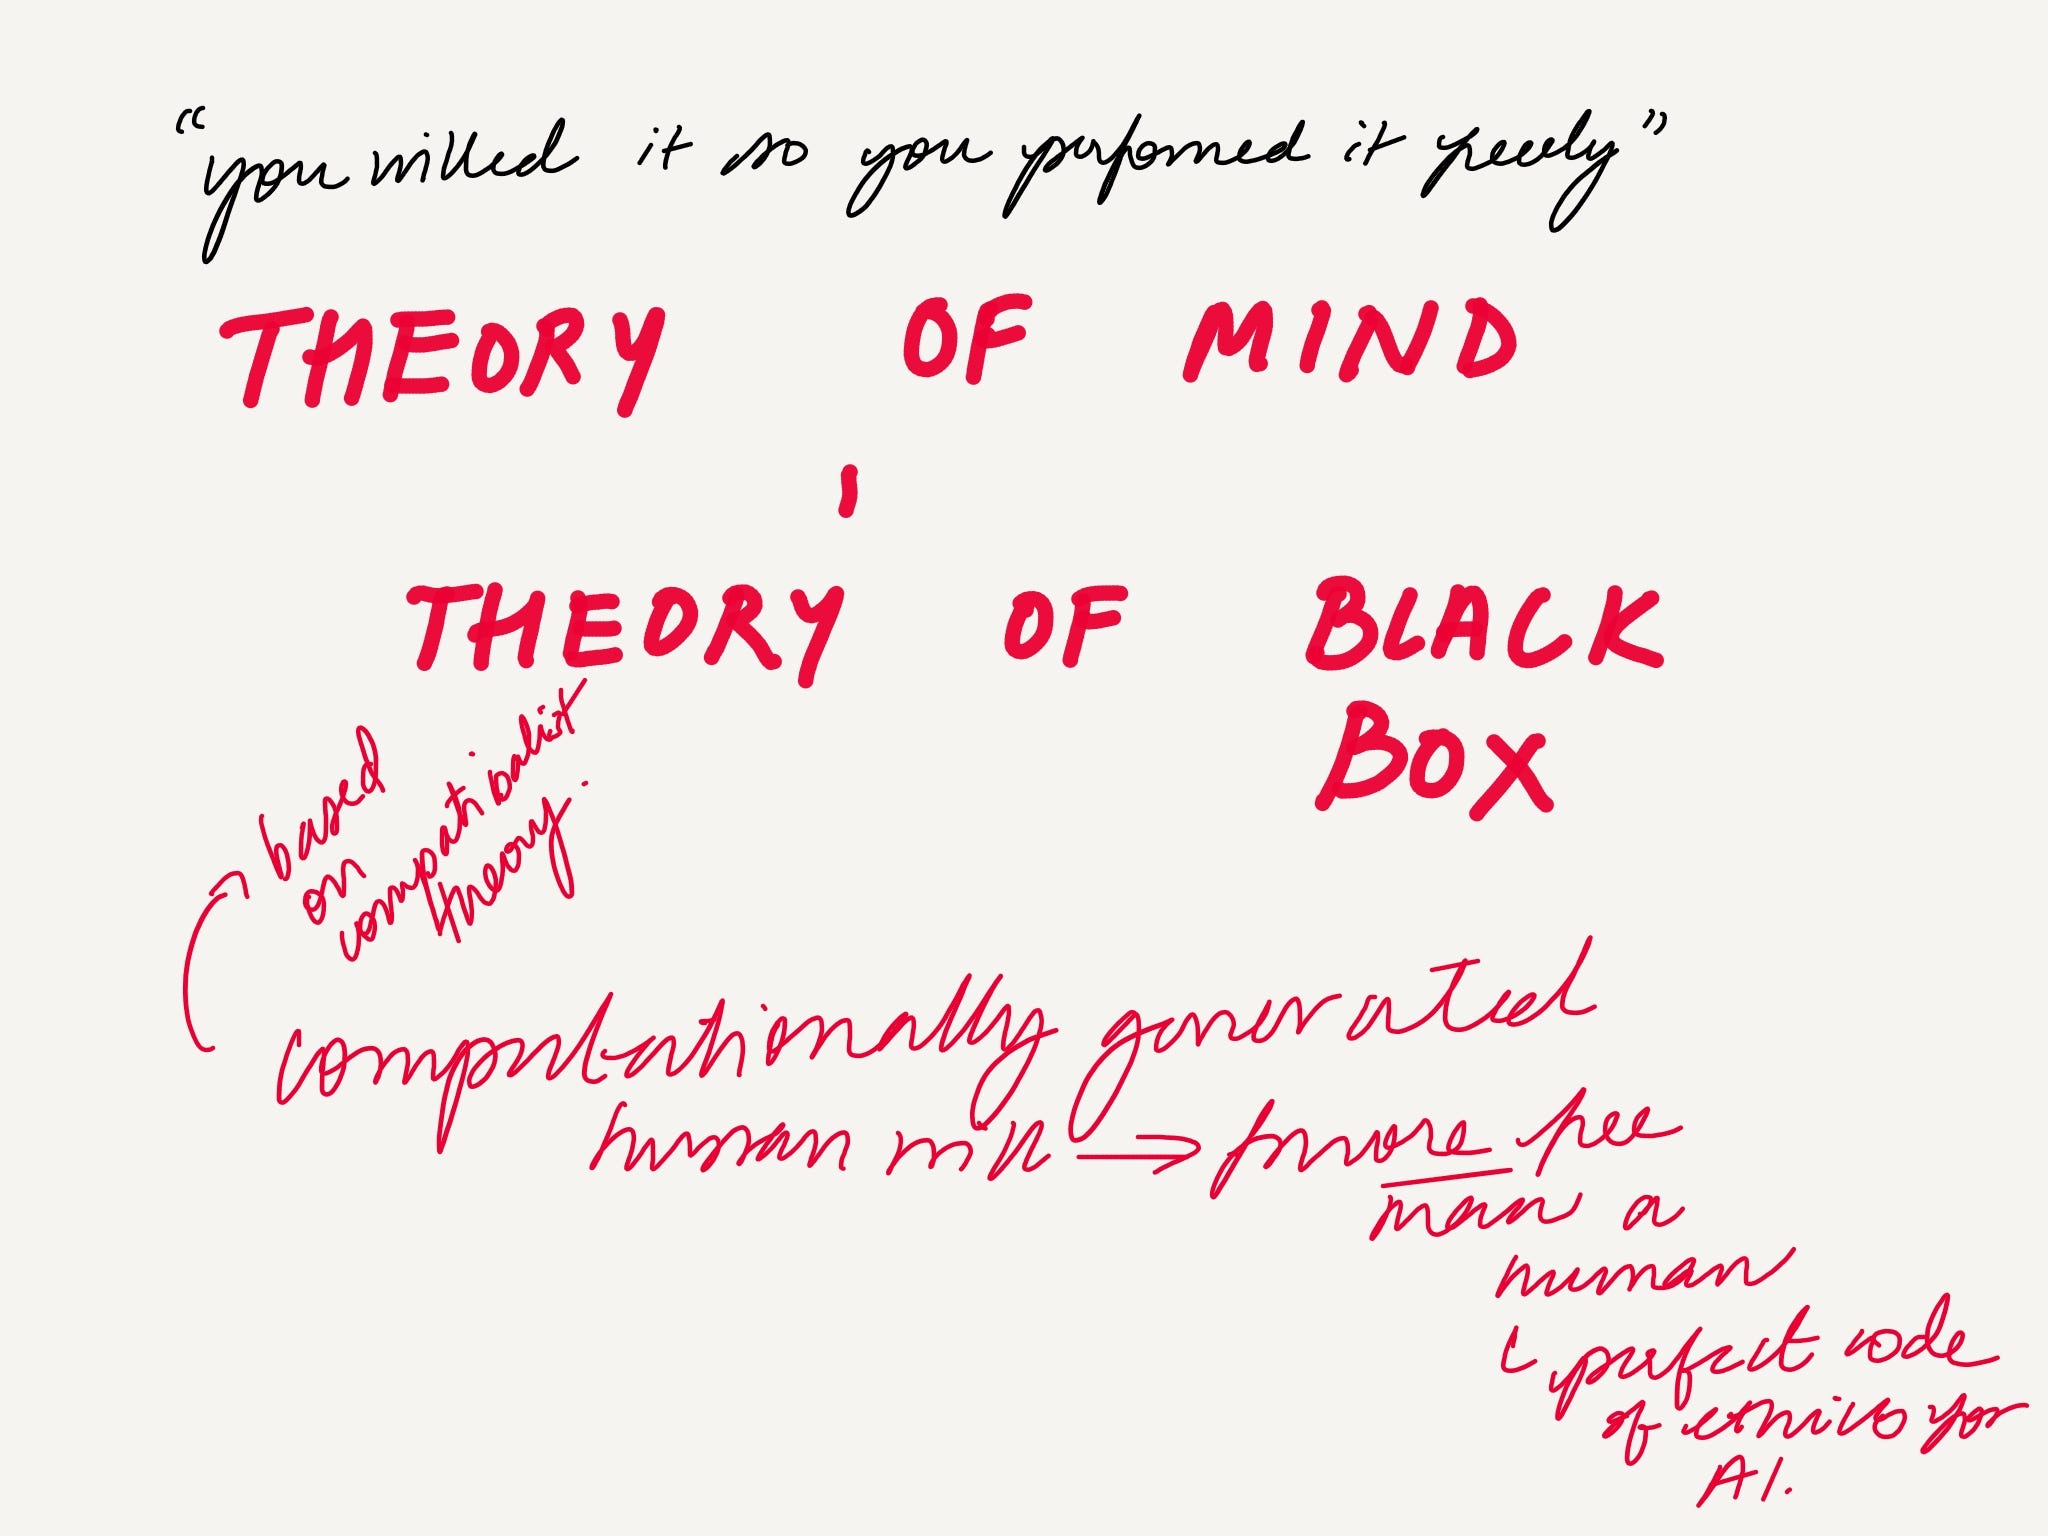 "you willed it so you performed it freely"
THEORY OF MIND
THEORY OF BLACK
BOX
based
on
compatibalist
theory.
computationally generated
human will → more free
man a
human
perfect code
of ethics for
AI.